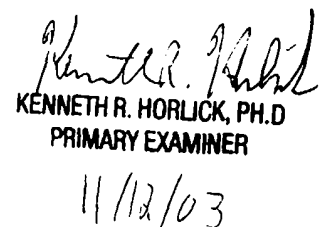 Kenneth R. Horlick
KENNETH R. HORLICK, PH.D
PRIMARY EXAMINER
11/12/03